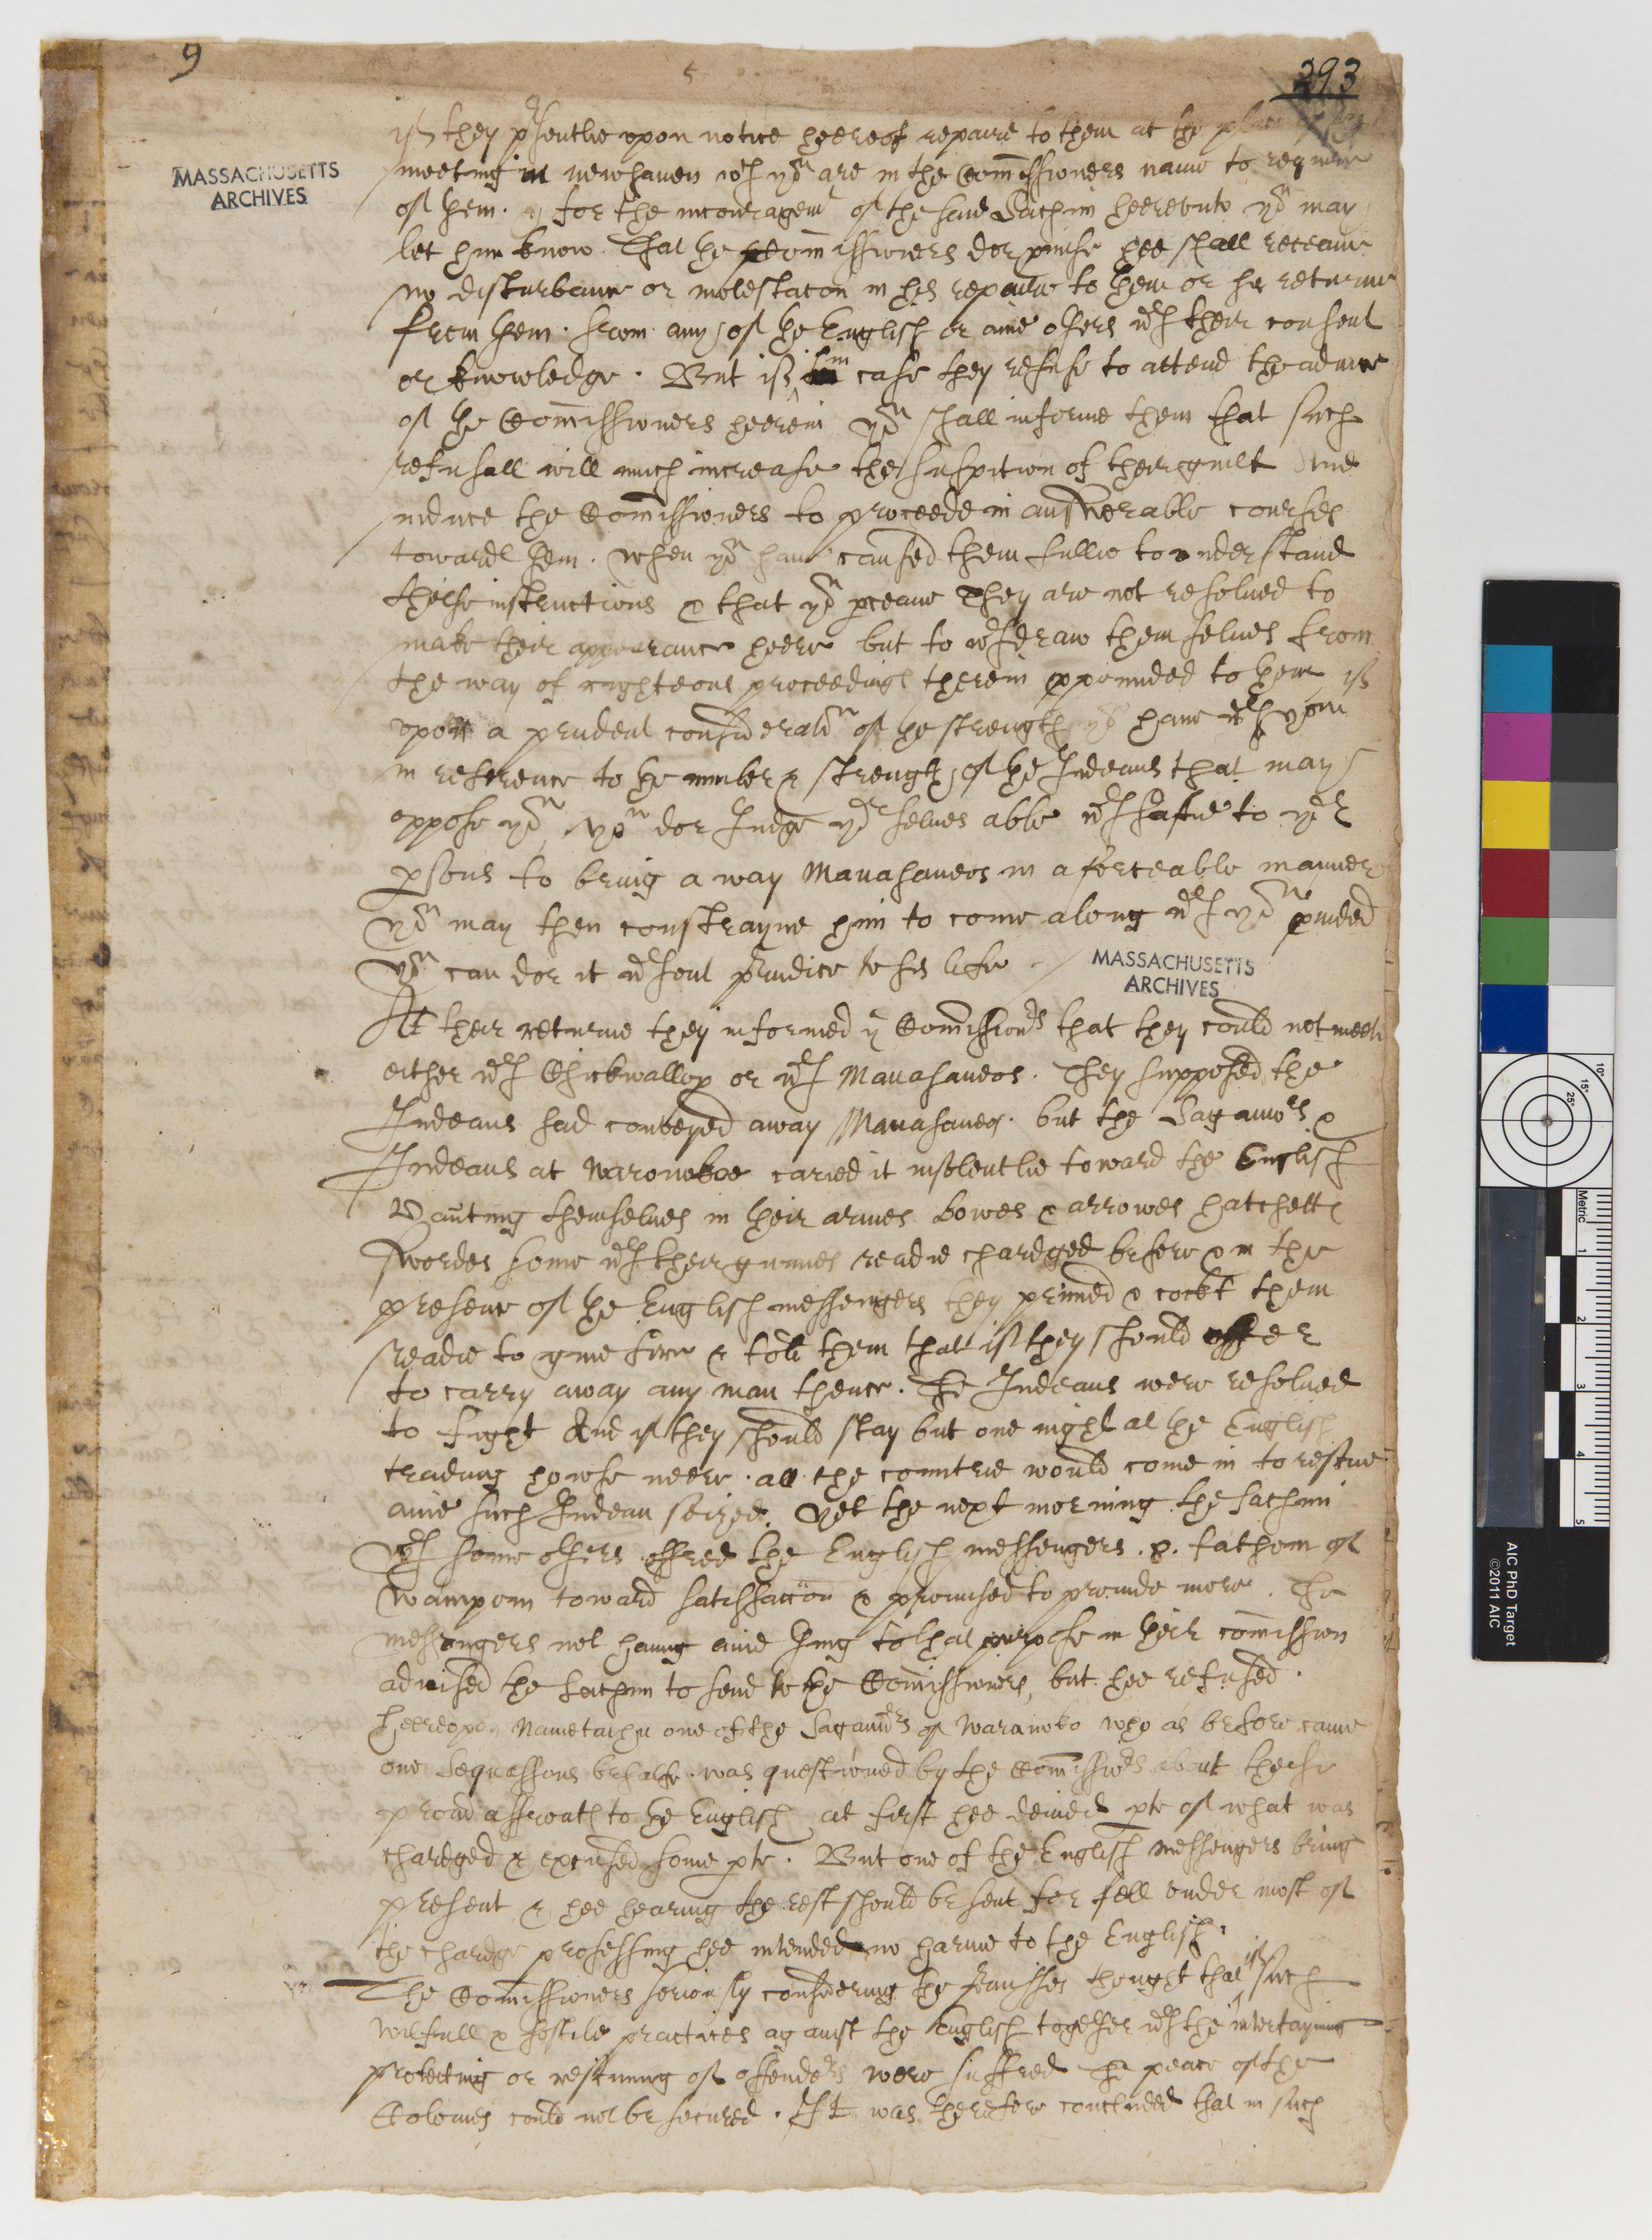 9
5
293
MASSACHUSETTS
ARCHIVES
if they psentlie vpon notice heereof repaire to them at the place of
meeting in newhaven wch you are in the Comissioners name to require
of them. & for the incouragemt of the said Sachim heerevnto you may
let him know That the Comissioners doe pmise hee shall receaue
no disturbance or molestacon in his repaire to them or his returne
from them. from any of the English or anie others wth their consent
or knowledge. But if in case they refuse to attend the advice
of the Comissioners heerein you shall informe them that such
refusall will much increase the suspition of their guilt And
induce the Comissioners to proceede in answerable courses
toward them. when you haue caused them fullie to vnderstand
theise instructions & that you pceaue They are not resolued to
make their appearance heere but to wthdraw themselues from
the way of righteous proceedings therein ppounded to them if
vpon a prudent consideratiō of the strength you haue wth you
in reference to the number & strength of the Indeans that may
oppose you, you doe Iudge yor selues able wth saftie to yor
psons to bring a way Manasaneos in a forceable manner
you may then constrayne him to come along wth you pvided
you can doe it wthout preiudice to his life.
MASSACHUSETTS
ARCHIVES
At their returne they informed ye Comissionrs that they could not meete
either wth Chickwallop or wth Manasaneos. They supposed the
Indeans had conveyed away Manasaneos. but the Sagamors &
Indeans at Waronokoe caried it insolentlie toward the English
Vanting themselues in their armes bowes & arrowes hatchetts
swordes some wth their gunnes readie chardged before & in the
presence of the English messengers they primed & cockt them
readie to giue fire & told them that if they should offer
to carry away any man thence. The Indeans were resolued
to fight And if they should stay but one night at the English
trading howse neere. all the countrie would come in to rescue
anie such Indean seized. yet the next morning the sachim
wth some others offred the English messengers. x. fathom of
Wampom toward satisfaccon & promised to prouide more. The
messengers not hauing anie thing to that purpose in their comission
aduised the sachim to send to the Comissioners, but hee refused.
heerevpon Nametachu one of the Sagamors of Waranoko who as before came
one Sequassons behalfe. was questioned by the Comissionrs about theise
proud affronts to the English at first hee denied pte of what was
chardged & excused some pte. But one of the English messengers being
present & hee hearing the rest should be sent for fell vnder most of
the chardge professing hee intended no harme to the English.
The Comissioners seriously considering the pmisses thought that if such
wilfull & hostile practices against the English together wth the intertayning
protecting or rescuing of offenders were suffred the peace of the
Colonies could not be secured. It was therefore concluded that in such